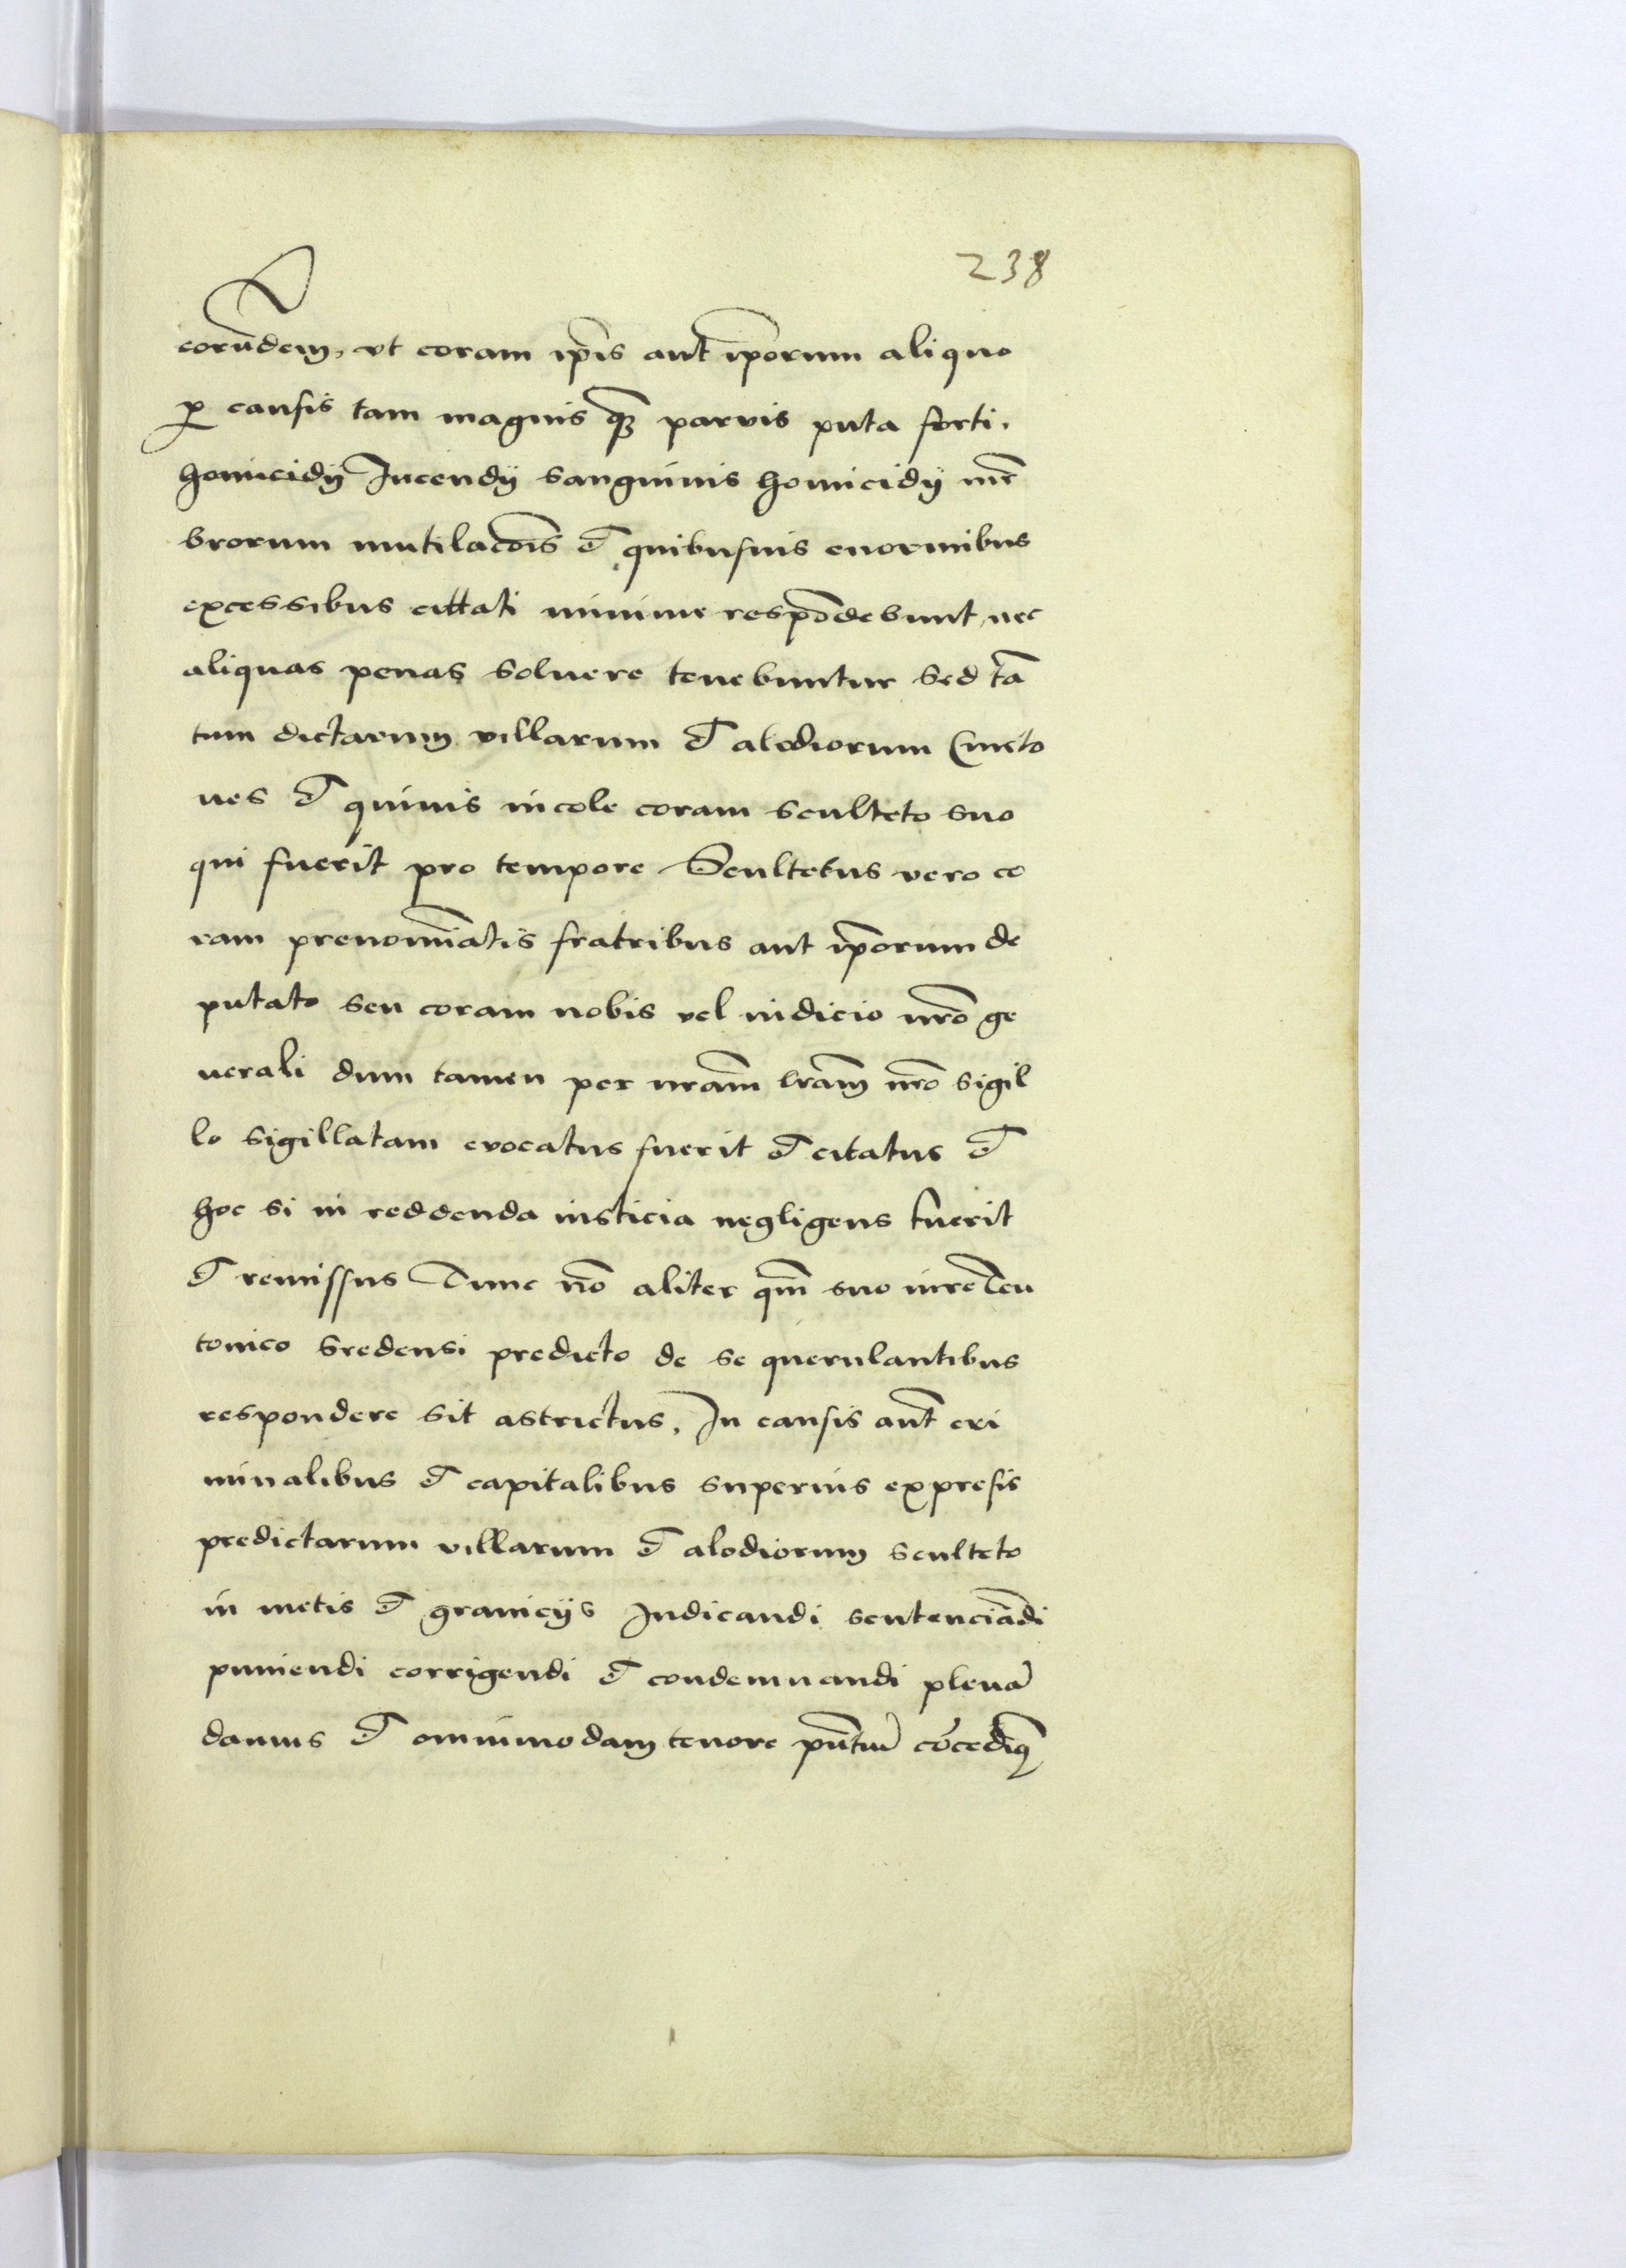 238
eorūdem, vt coram ip̄is aut ip̄orum aliquo
ꝓ causis tam magnis q̄ȝ parvis puta ferti.
homicidy Incendÿ sanguinis homicidÿ mē
brorum mutilacōis et quibusuis enormibus
excessibus cittati minime respōdebunt, nec
aliquas penas soluere tenebuntur sed tā
tum dictarum villarum et alodiorum Cmeto
nes et quiuis incole coram sculteto suo
qui fuerit pro tempore Scultetus vero co
ram prenomīatis fratribus aut ip̄orum de
putato seu coram nobis vel iudicio nr̄o ge
nerali dum tamen per nr̄am lr̄am nr̄o sigil
lo sigillatam evocatus fuerit et citatus et
hoc si in reddenda iusticia negligens fuerit
et remissus Tunc nō aliter qm̄ suo iure Teu
tonico Sredensi predicto de se querulantibus
respondere sit astrictus, In causis aut̄ cri
minalibus et capitalibus superius expresis
predictarum villarum et alodiorum sculteto
in metis et granicÿs Iudicandi sentenciādi
puniendi corrigendi et condemnandi plenā
damus et omnimodam tenore pn̄tiū cōcedimꝰ